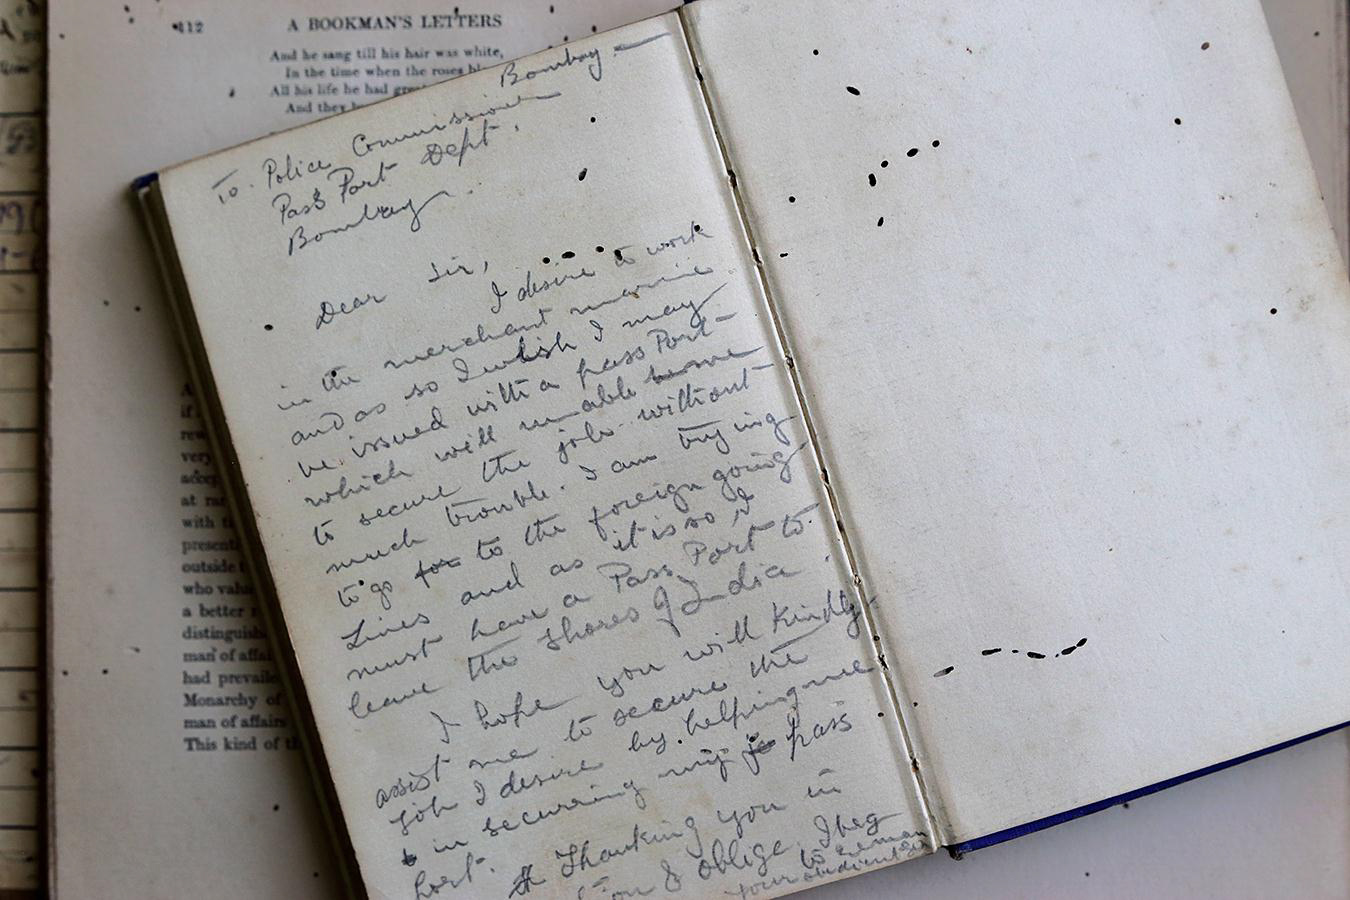 112 A BOOKMAN'S LETTERS
And he sang till his hair was white,
In the time when the roses
All his life he had
And they
Bombay
To. Police Commissioner
Pass Port Dept.
Bombay.
Dear Sir,
I desire to work
in the merchant marine
and as so I wish I may
be issued with a pass Port
which will unable me
to secure the job without
much trouble. I am trying
to go for to the foreign going
Lines and as it is so I
must have a Pass Port to
leave the shores of India.
I hope you will kindly
assist me to secure the
job I desire by helping me
in securing my pass
port. Thanking you in
on & oblige I beg
to reman
your
A
if
rew
very
accep
at rar
with t
present
outside t
who valu
a better
distinguish
man of affai
had prevaile
Monarchy of
man of affairs
This kind of th